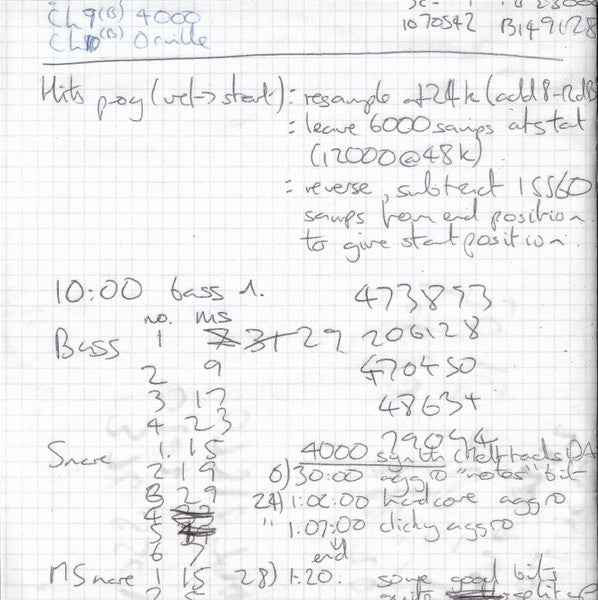 Ch 9(B) 4000
Ch 10(B) Orville
1070542 B149128
Hits prog (vel->start): resample at 24k (add 8-12dB
: leave 6000 samps at start
(12000@48k)
: reverse, subtract 15560
samps from end position
to give start position.
10:00 bass 1. 473893
no. ms
Bass 1 29 206128
2 9 470450
3 17 48634
4 23 29044
Snare 1. 15 4000 synth
2 19 6) 30:00 aggro "notes" bit
3 29 24) 1:02:00 hardcore aggro
4
5 " 1:07:00 clicky aggro
6 7 end
MSnare 1 15 28) 1:20: some good bits
2 quite